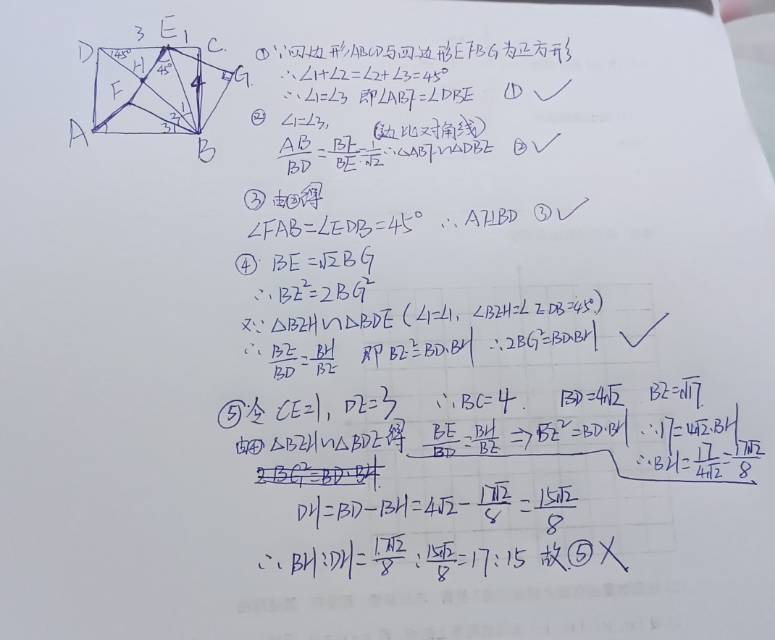 3 E 1
D 45° C
H 45° 4 G
F
1
2
A 3 B
① ∵四边形ABCD与四边形EFBG为正方形
∴∠1+∠2=∠2+∠3=45°
∴∠1=∠3 即∠ABF=∠DBE ① ✓
② ∠1=∠3, (边比对角线)
AB/BD=BF/BE=1/√2 ∴△ABF∽△DBE ② ✓
③ 由②得
∠FAB=∠EDB=45° ∴AF⊥BD ③ ✓
④ BE=√2BG
∴BE²=2BG²
又∵△BEH∽△BDE(∠1=∠1, ∠BEH=∠EDB=45°)
∴BE/BD=BH/BE 即BE²=BD·BH ∴2BG²=BD·BH ✓
⑤ 令CE=1, DE=3 ∴BC=4. BD=4√2 BE=√17.
由④△BEH∽△BDE得 BE/BD=BH/BE ⇒BE²=BD·BH ∴17=4√2·BH
2BG²=BD·BH ∴BH=17/4√2=17√2/8
DH=BD-BH=4√2-17√2/8=15√2/8
∴BH:DH=17√2/8:15√2/8=17:15 故⑤✗